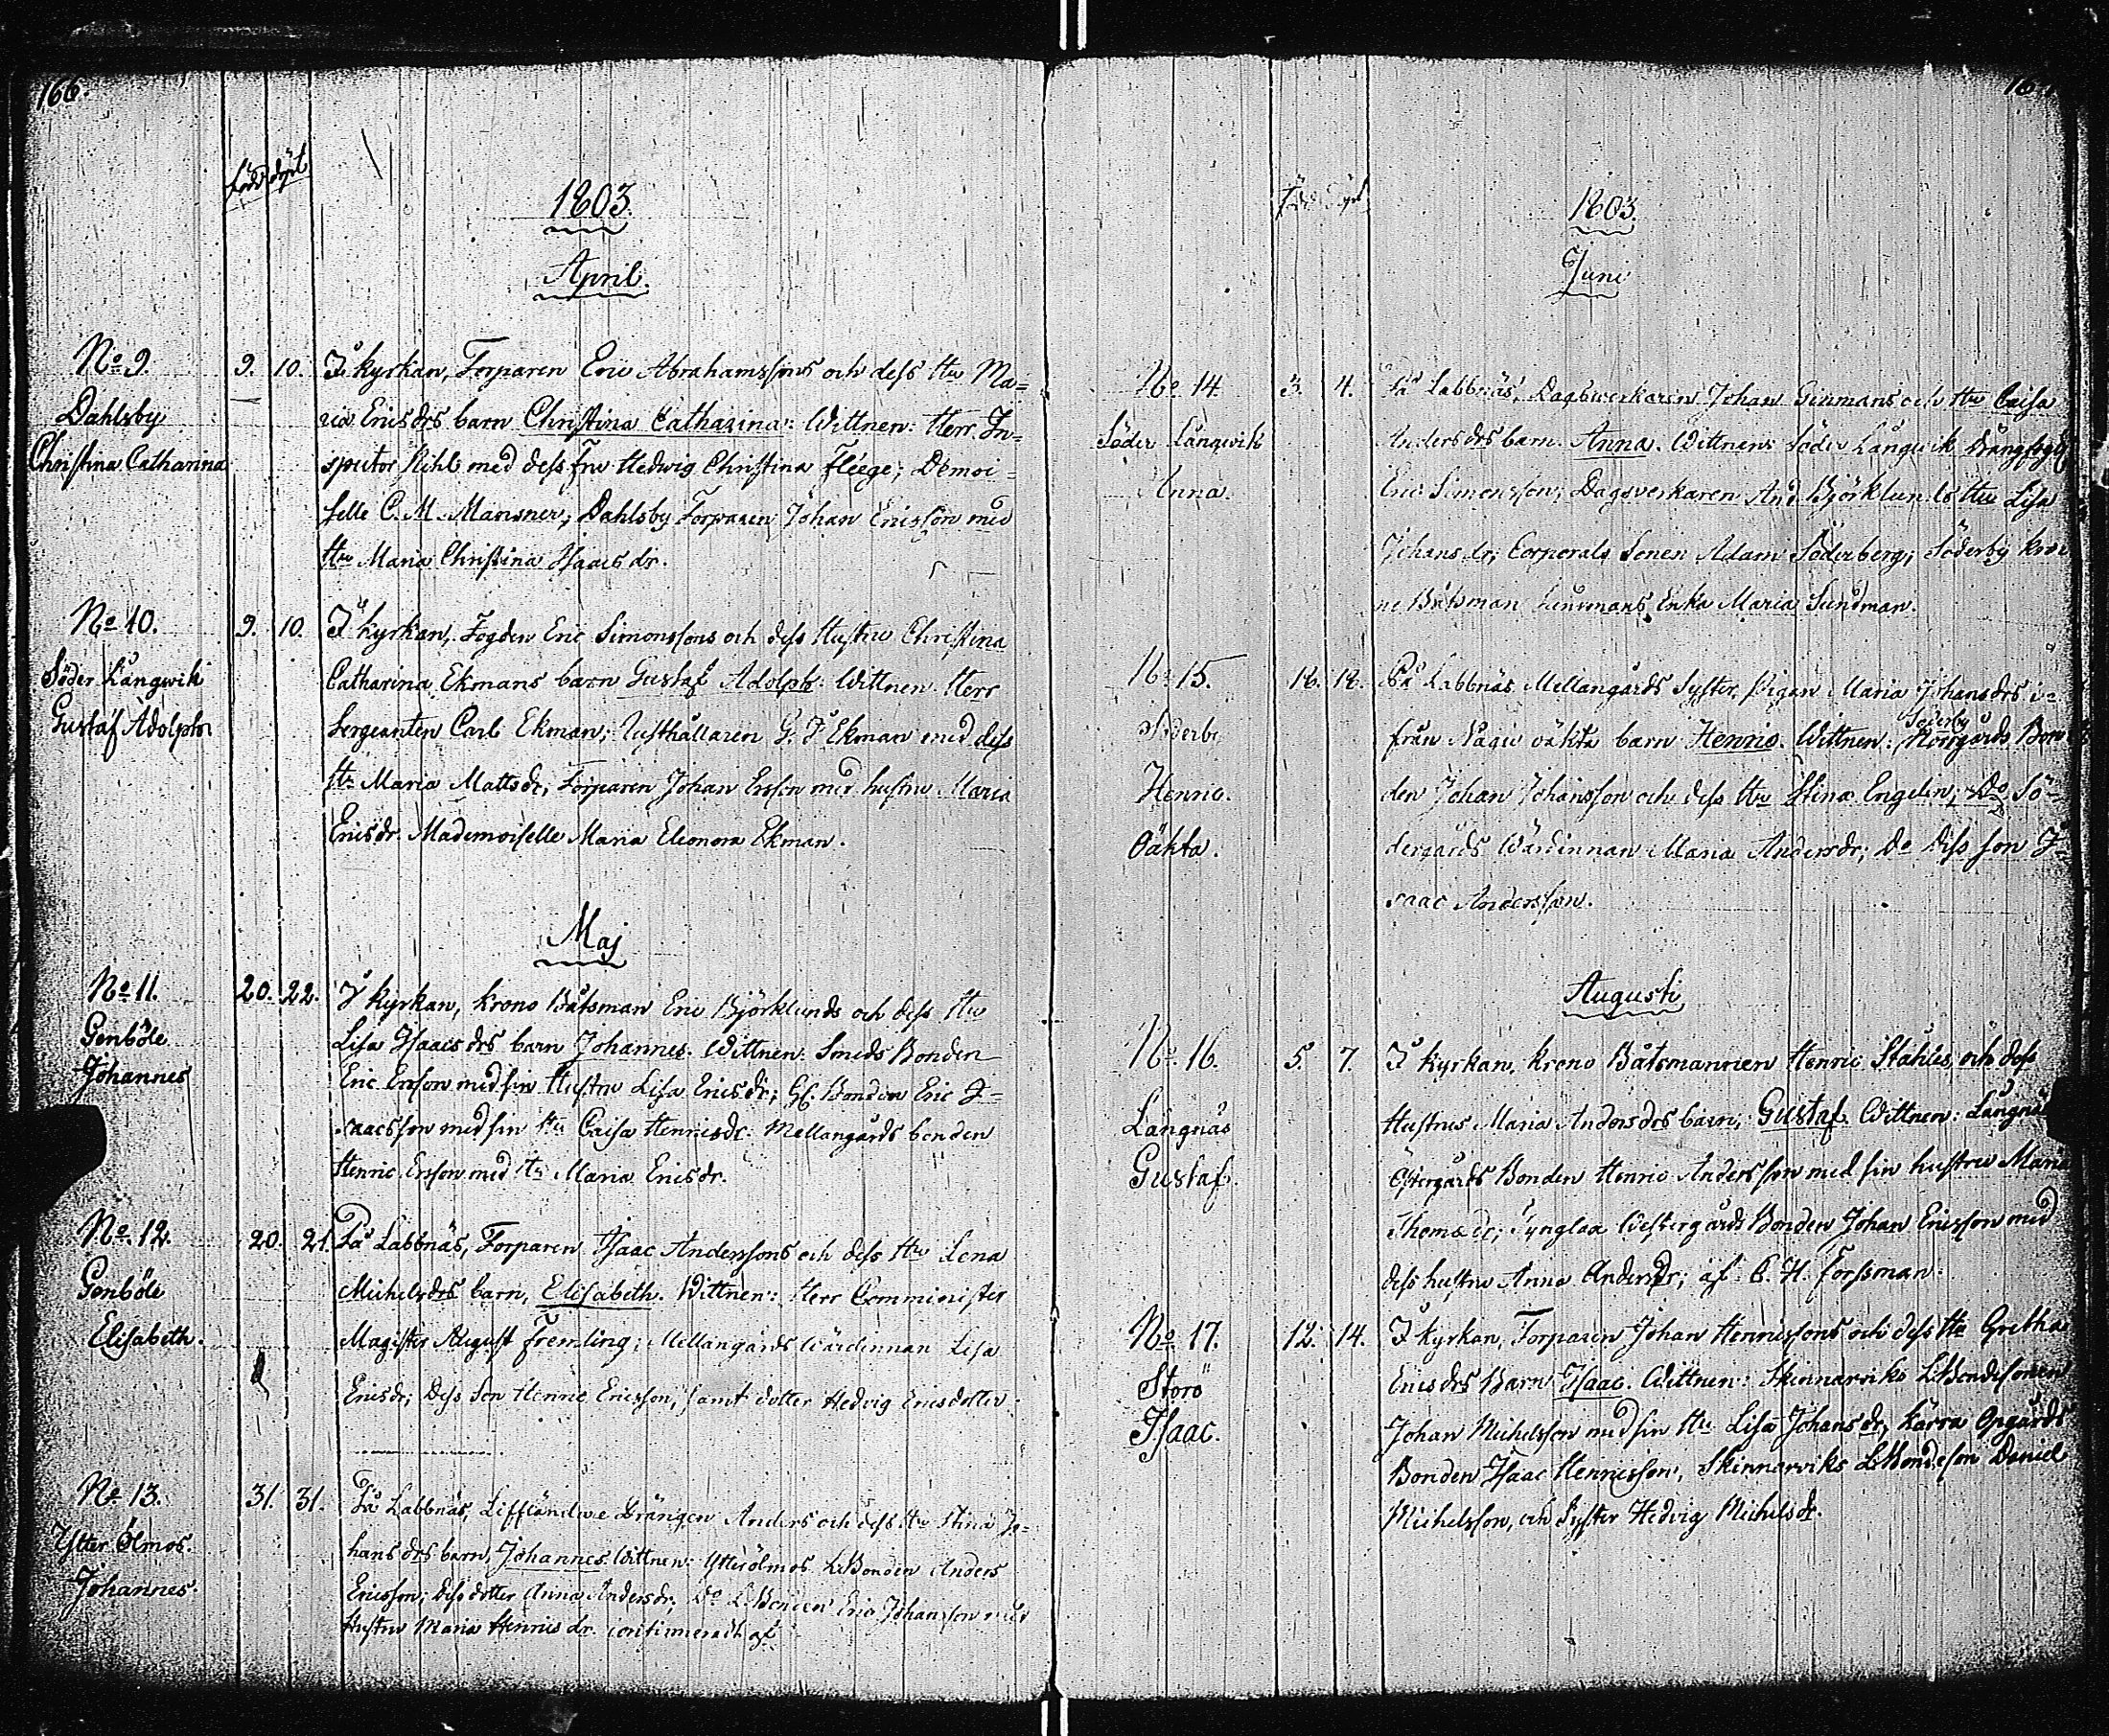 166.
född döpt
1803.
April.
No 9. 9. 10. I kyrkan, Torparen Eric Abrahamssons och dess Hu Ma=
Dahlsby
Christina Catharina
ria Ericsdrs barn Christina Catharina: Wittnen: Herr In=
spector Kihl med dess Fru Hedwig Christina Fleege; Demoi=
selle C. M. Marsner; Dahlsby Torparen Johan Ericsson med
Hu Maria Christina Isaacsdr.
No 10. 9. 10. I kyrkan, Fogden Eric Simonssons och dess Hustru Christina
Söder Långwik
Gustaf Adolph
Catharina Ekmans barn Gustaf Adolph: Wittnen. Herr
Sergeanten Carl Ekman; Rusthållaren G. J. Ekman med dess
Hu Maria Mattsdr, Torparen Johan Ersson med hustru Maria
Ericsdr. Mademoiselle Maria Eleonora Ekman.
Maj
No 11. 20. 22. I kyrkan, krono Båtsman Eric Björklunds och dess Hu
Genböle
Johannes
Lisa Isaacsdrs barn Johannes. Wittnen: Smeds Bonden
Eric Ersson med sin Hustru Lisa Ericsdr; Bonden Eric I=
saacsson med sin Hu Caisa Henricsdr: Mellangårds bonden
Henric Ersson med Hu Maria Ericsdr.
No 12. 20. 21. På Labbnäs, Torparen Isaac Anderssons och dess Hu Lena
Genböle
Elisabeth.
Michelsdrs barn, Elisabeth. Wittnen: Herr Comminister
Magister August Fremling; Mellangårds Wärdinnan Lisa
Ericsdr; Dess Son Henric Ericsson, samt dotter Hedvig Ericsdotter.
No 13. 31. 31. På Labbnäs, Drängen Anders och dess Hu Stina Jo=
Ytter Ölmos.
Johannes.
hansdrs barn, Johannes. Wittnen: Ytterölmos LBonden Anders
Ericsson; Dess dotter Anna Andersdr; Do LBonden Eric Johansson med
Hustru Maria Henricsdr.
född döpt
1803.
Juni
No 14. 3. 4. På Labbnäs, Dagsverkaren Johan och Hu Caisa
Söder Långwik
Anna.
Andersdrs barn. Anna. Wittnen: Söder Långwik
Eric Simonsson; Dagsverkaren And. Björklunds Hu Lisa
Johansdr; Corporals Sonen Adam Söderberg; Söderby kro
no Båtsman Enka Maria Sundman.
No 15. 18. 18. På Labbnäs Mellangårds Syster, Pigan Maria Johansdrs i=
Söderby
Söderby
Henric.
Oäkta.
från Nagu oäkta barn Henric. Wittnen: Norrgårds Bon
den Johan Johansson och dess Hu Stina Engelin; Do Sö=
dergårds Wärdinnan Maria Andersdr; Do Dess son I=
saac Andersson.
Augusti
No 16. 5. 7. I kyrkan, krono Båtsmannen Henric Ståhles, och dess
Långnäs
Gustaf.
Hustrus Maria Andersdrs barn; Gustaf. Wittnen: Långnäs
Östergårds Bonden Henric Andersson med sin hustru Maria
Thomasdr; Westergårds Bonden Johan Ericsson med
dess hustru Anna Andersdr; af C. H. Forssman.
No 17. 12. 14. I kyrkan, Torparen Johan Henricssons och dess Hu Gretha
Storö
Isaac.
Ericsdrs Barn Isaac. Wittnen: Skinnarviks LBondesonen
Johan Michelsson med sin Hu Lisa Johansdr, Kärra Opgårds
Bonden Isaac Henricsson, Skinnarviks LBondeson Daniel
Michelsson, och Syster Hedvig Michelsdr.